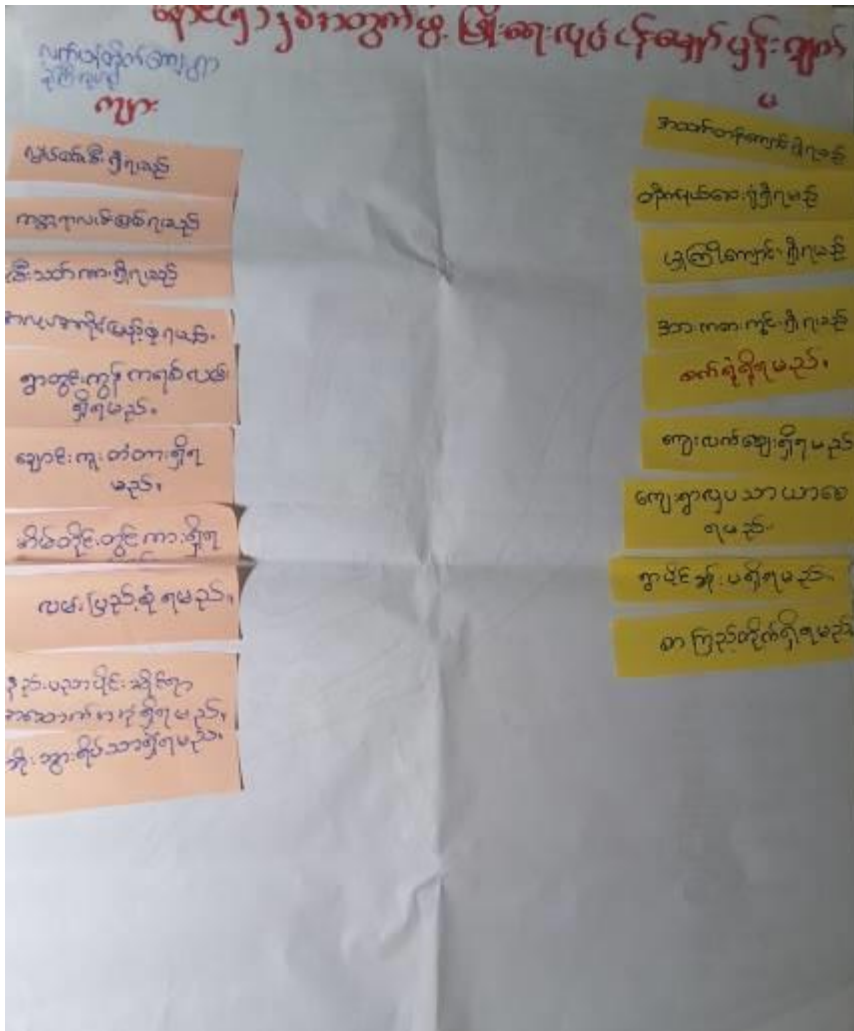 နောင်(၅)နှစ်အတွက်ဖွံ့ဖြိုးရေးလုပ်ငန်းမျှော်မှန်းချက်
ကျား
မ
လျှပ်စစ်မီးရှိရမည်
ကွန်ကရစ်လမ်းဖြစ်ရမည်
မီးသတ်ကားရှိရမည်
ရွာတွင်းကွန်ကရစ်လမ်း
ရှိရမည်။
ချောင်းကူးတံတားရှိရ
မည်။
အိမ်တိုင်းတွင်ကားရှိရ
လမ်းပြည့်စုံရမည်။
နည်းပညာပိုင်းဆိုင်ရာ
အဆောက်အအုံရှိရမည်။
ဘိုးဘွားရိပ်သာရှိရမည်။
အထက်တန်းကျောင်းရှိရမည်
တိုက်နယ်ဆေးရုံရှိရမည်
မူကြိုကျောင်းရှိရမည်
အားကစားကွင်းရှိရမည်
စက်ရုံရှိရမည်။
ကျေးလက်ဈေးရှိရမည်
ကျေးရွာလှပသာယာစေ
ရမည်။
ရွာပိုင်အိုးပရှိရမည်။
စာကြည့်တိုက်ရှိရမည်